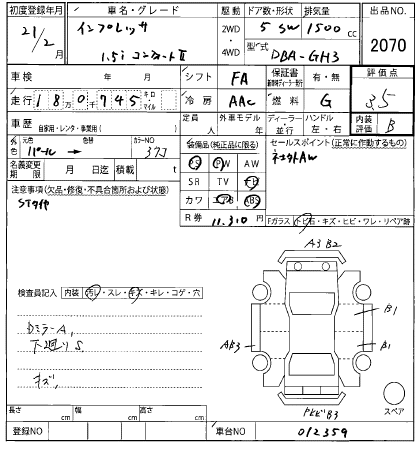 初度登録年月 車名・グレード 駆動 ドア数・形状 排気量 出品No.
21/2月 インプレッサ 2WD・4WD 5 SW 1500cc 2070
1.5i 型式 DBA-GH3
車検 年 月 シフト FA 保証書 有・無 評価点
走行 18万0千745キロ マイル 冷房 AAC 燃料 G 3.5
車歴 自家用・レンタ・事業用( ) 定員 人 外車モデル 年 ディーラー・並行 ハンドル 左・右 内装評価 B
外色 元色 パール 色替 カラーNO 37J 装備品(純正品に限る) セールスポイント(正常に作動するもの)
名義変更期限 月 日迄 積載 t PS PW AW
注意事項(欠品・修復・不具合箇所および状態) SR TV ナビ
カワ エアB ABS
R券 11,310円 Fガラス トビ石・キズ・ヒビ・ワレ・リペア跡
A3 B2
検査員記入 内装 汚レ・スレ・キズ・キレ・コゲ・穴
B1
DミラーA, AB3 B1
下廻りS
キズ,
スペア
長さ cm 幅 cm 高さ cm
登録NO 車台NO 012359